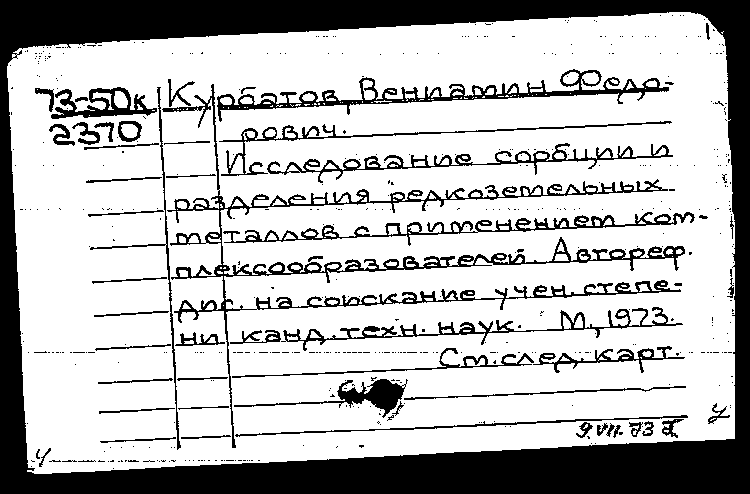 73-50к Курбатов, Вениамин Федо-
2370 рович.
Исследование сорбции и
разделения редкоземельных
металлов с применением ком-
плексообразователей. Автореф.
дис. на соискание учен. степе-
ни канд. техн. наук. М., 1973.
См. след. карт.
9.VII.73